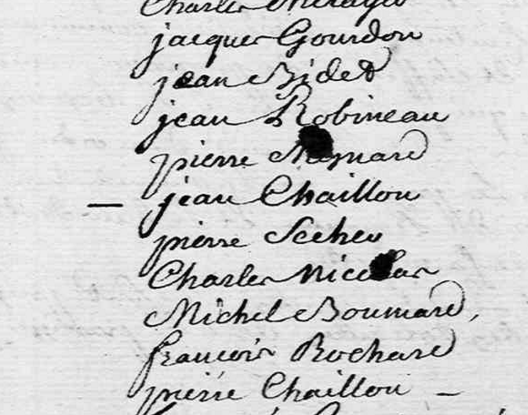 Charles
jacques Gourdon
jean Bidet
jean Robineau
pierre
— jean Chaillou
pierre Secher
Charles Nicolas
Michel Boumard,
francois Rochard
pierre Chaillou —